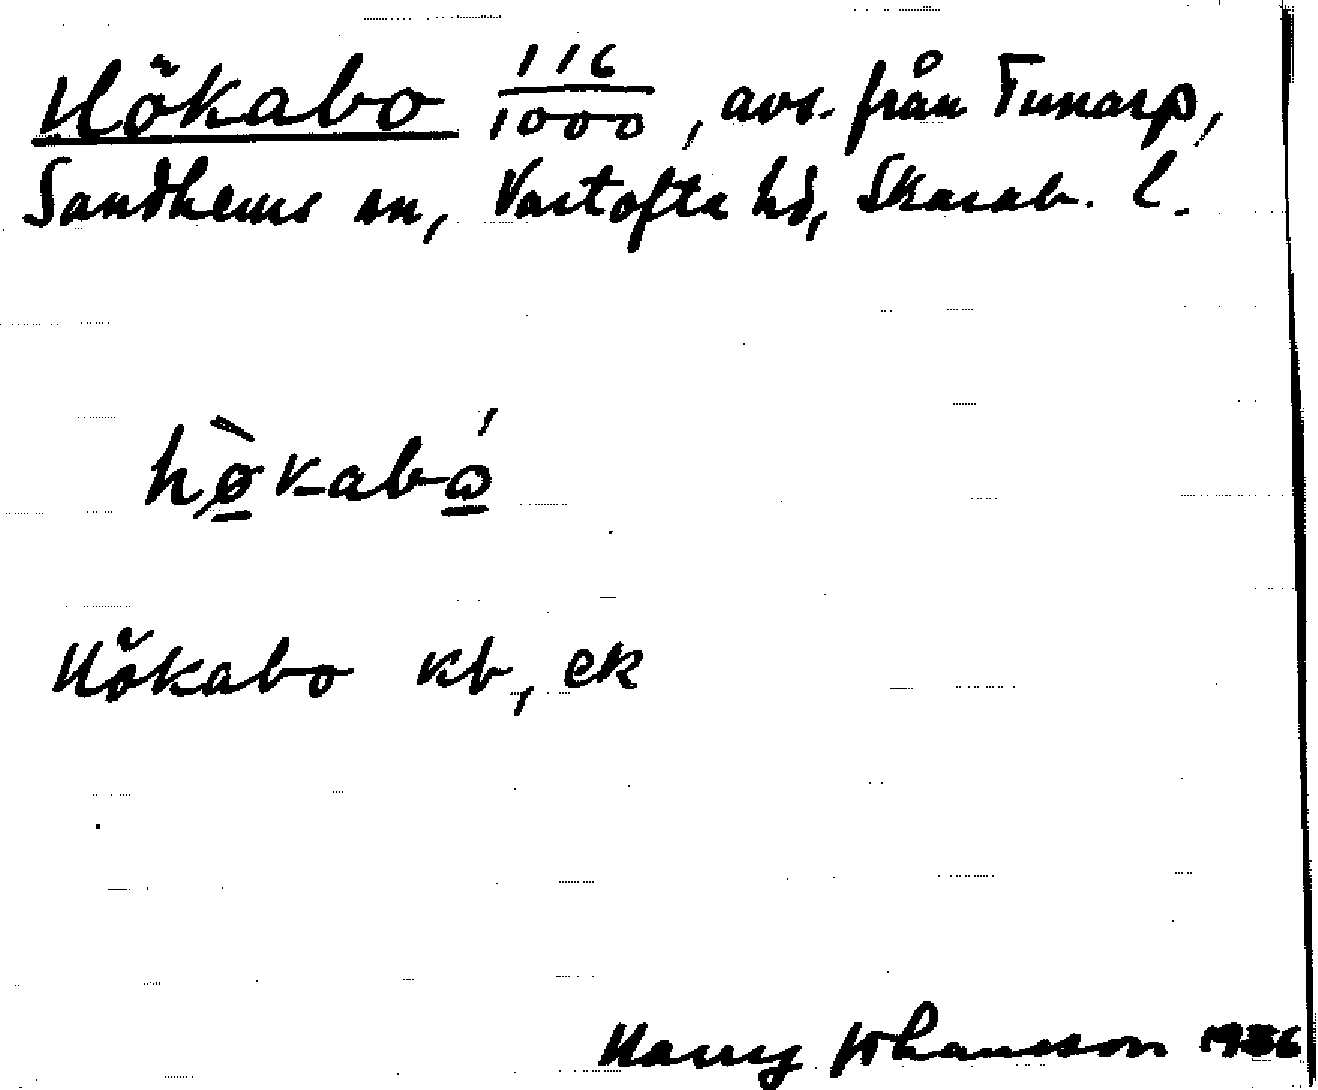 Hökabo 116/1000, avs. från Tunarp,
Sandhems sn, Vartofta hd, Skarab. l.
hø̀kabó
Hökabo kb, ek
Harry Johansson 1936